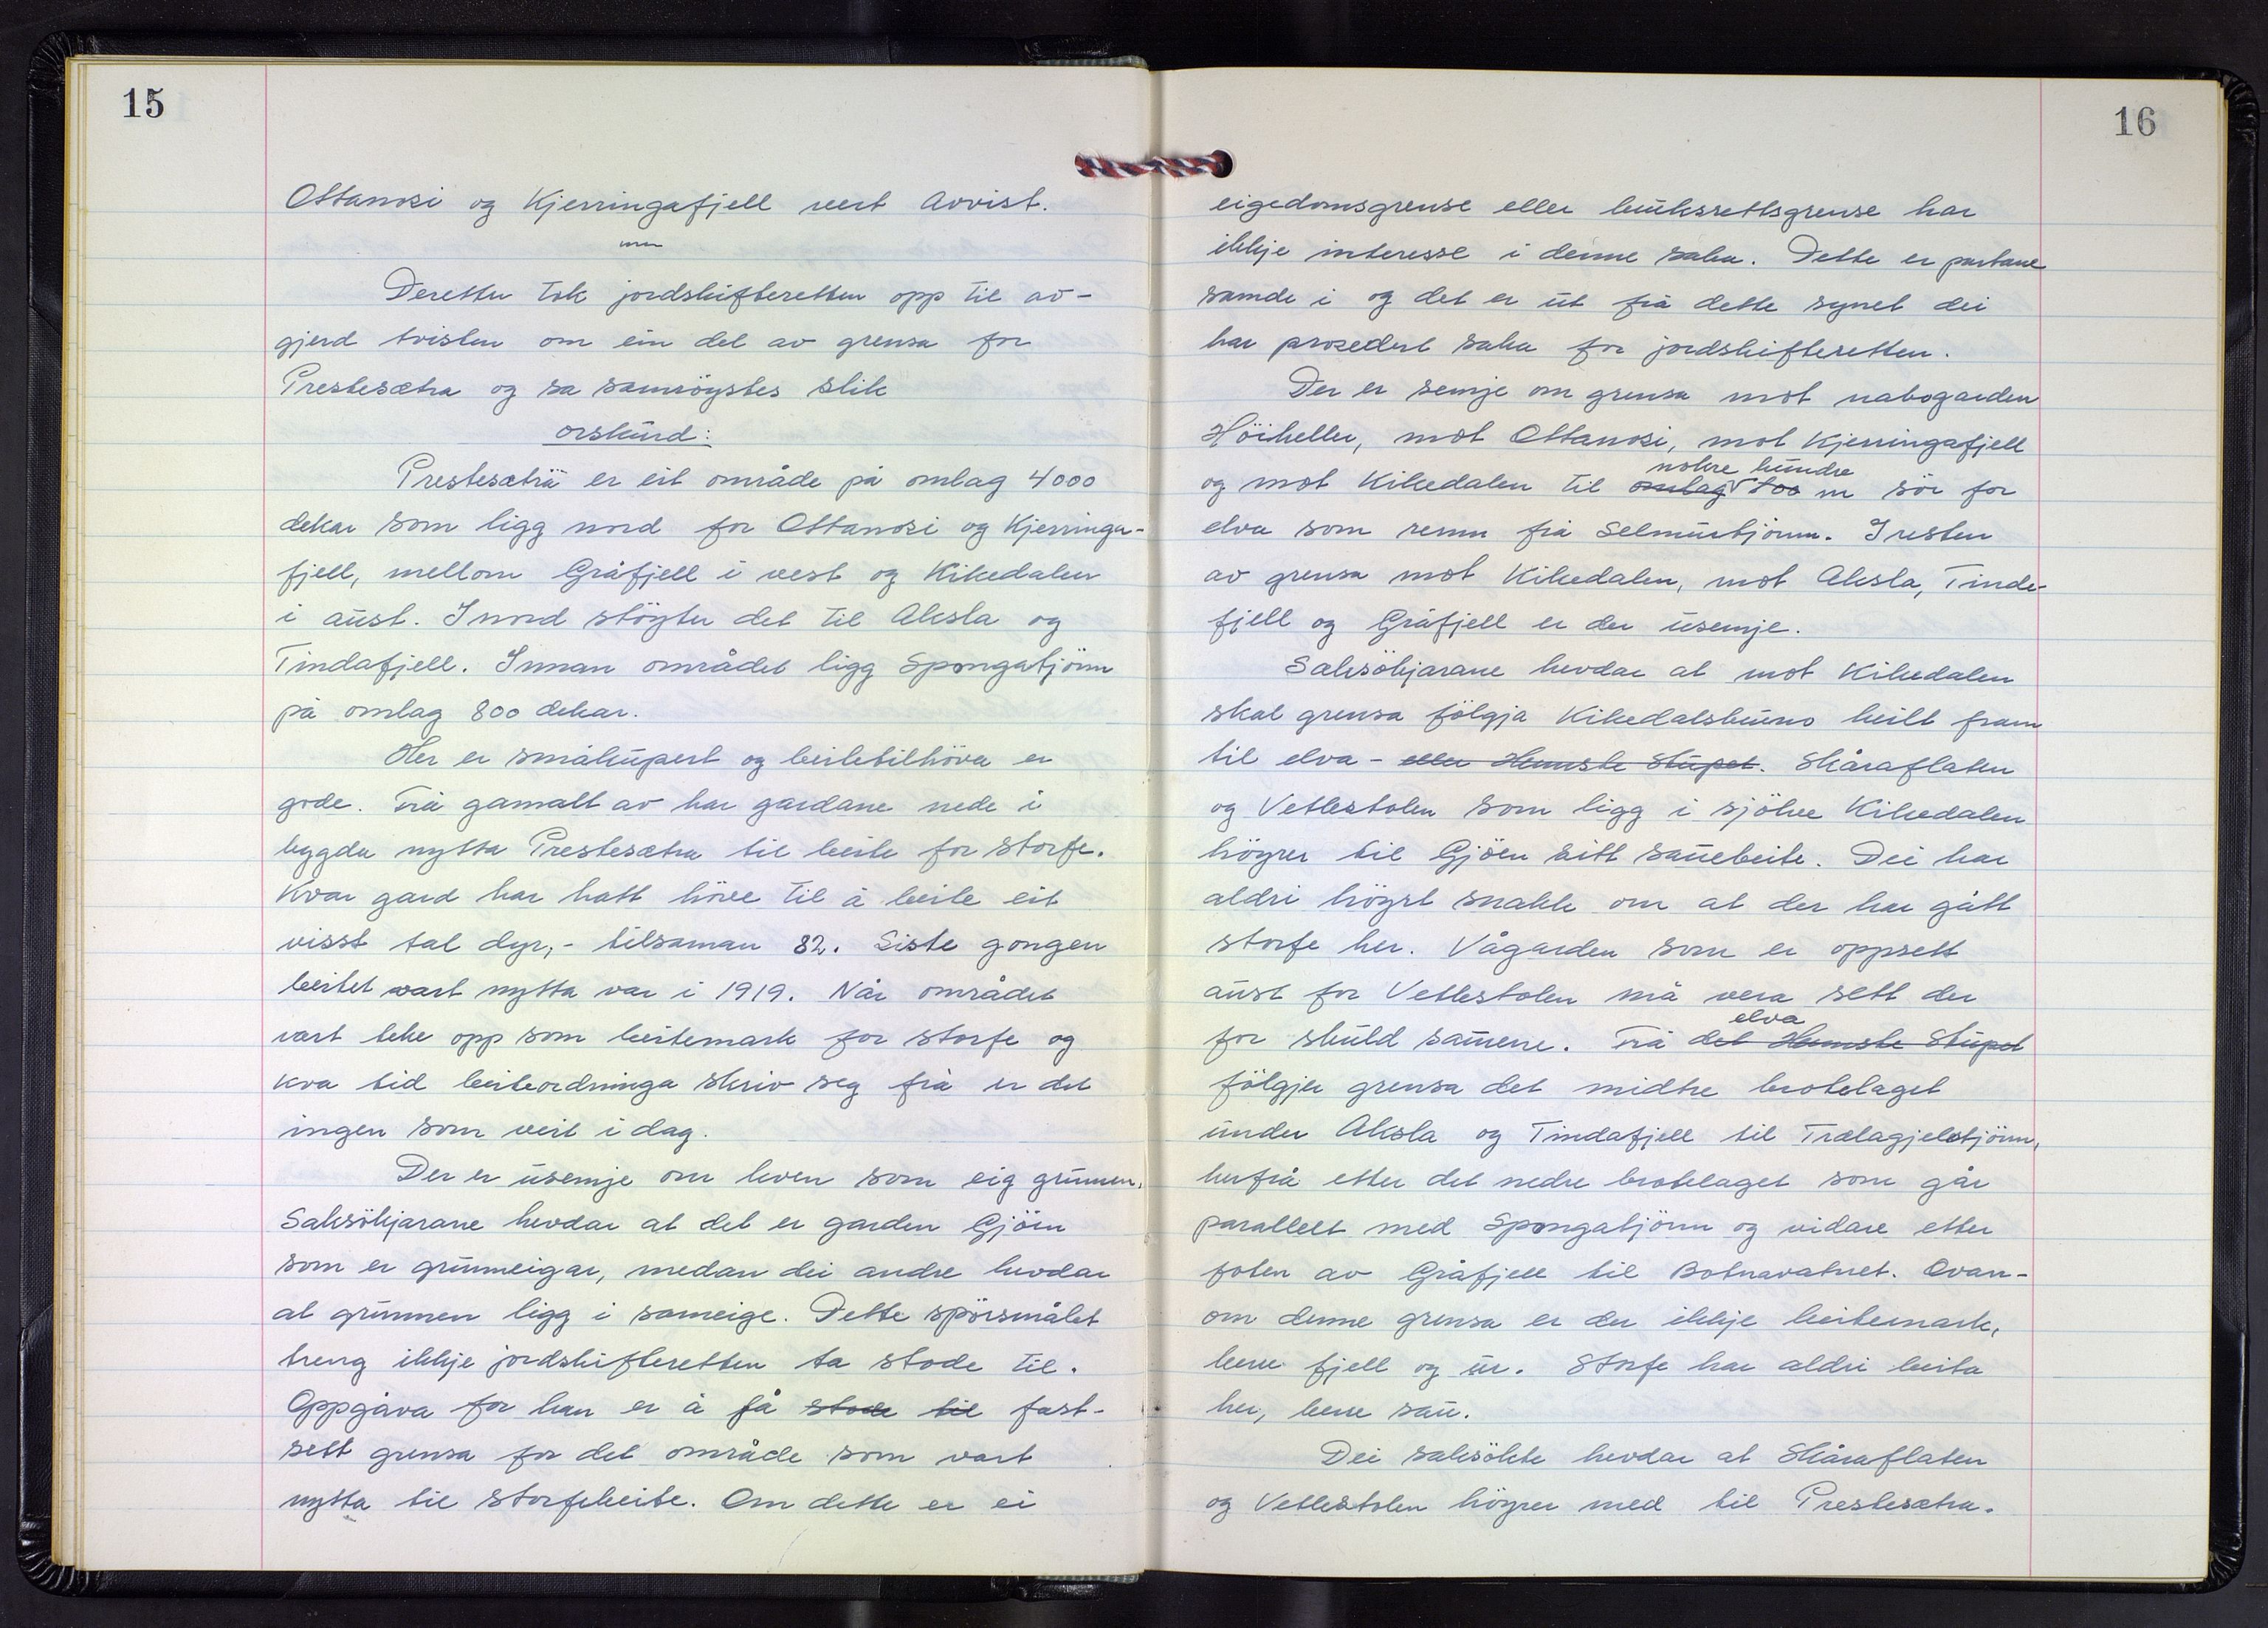 15
Ottanosi og Kjerringafjell vert avvist.
Deretter tok jordskifteretten opp til av-
gjerd tvisten om ein del av grensa for
Prestesætra og sa samrøystes slik
orskurd:
Prestesætra er eit område på omlag 4000
dekar som ligg nord for Ottanosi og Kjerringa-
fjell, mellom Gråfjell i vest og Kikedalen
i aust. I nord støyter det til Aksla og
Tindafjell. Innan området ligg Spongatjönn
på omlag 800 dekar.
Her er småkupert og beitetilhöva er
gode. Frå gamalt av har gardane nede i
bygda nytta Prestesætra til beite for storfe.
Kvar gard har hatt höve til å beite eit
visst tal dyr,- tilsaman 82. Siste gongen
beitet vart nytta var i 1919. Når området
vart teke opp som beitemark for storfe og
kva tid beiteordninga skriv seg frå er det
ingen som veit i dag.
Der er usemje om kven som eig grunnen.
Saksökjarane hevdar at det er garden Gjöen
som er grunneigar, medan dei andre hevdar
at grunnen ligg i sameige. Dette spörsmålet
treng ikkje jordskifteretten ta stode til.
Oppgåva for han er å få stode til fast-
sett grensa for det område som vart
nytta til storfebeite. Om dette er ei
16
eigedomsgrense eller bruksrettsgrense har
ikkje interesse i denne saka. Dette er partane
samde i og det er ut frå dette synet dei
har prosedert saka for jordskifteretten.
Der er semje om grensa mot nabogarden
Höiheller, mot Ottanosi, mot Kjerringafjell
nokre hundre
og mot Kikedalen til omlag 500 m sör for
elva som renn frå Selmurtjönn. I resten
av grensa mot Kikedalen, mot Aksla, Tinde-
fjell og Gråfjell er der usemje.
Saksökjarane hevdar at mot Kikedalen
skal grensa fölgja Kikedalsbruno heilt fram
til elva - eller Hemste Stupet. Skåraflaten
og Vetlestolen som ligg i sjölve Kikedalen
höyrer til Gjöen sitt sauebeite. Dei har
aldri höyrt snakk om at der har gått
storfe her. Vågarden som er oppsett
aust for Vetlestolen må vera sett der
elva
for skuld sauene. Frå det Hemste Stupet
fölgjer grensa det midtre brotelaget
under Aksla og Tindafjell til Trælagjelstjönn,
herfrå etter det nedre brotelaget som går
parallelt med Spongatjönn og vidare etter
foten av Gråfjell til Botnavatnet. Ovan-
om denne grensa er der ikkje beitemark,
berre fjell og ur. Storfe har aldri beita
her, berre sau.
Dei saksökte hevdar at Skåraflaten
og Vetlestolen höyrer med til Prestesætra.